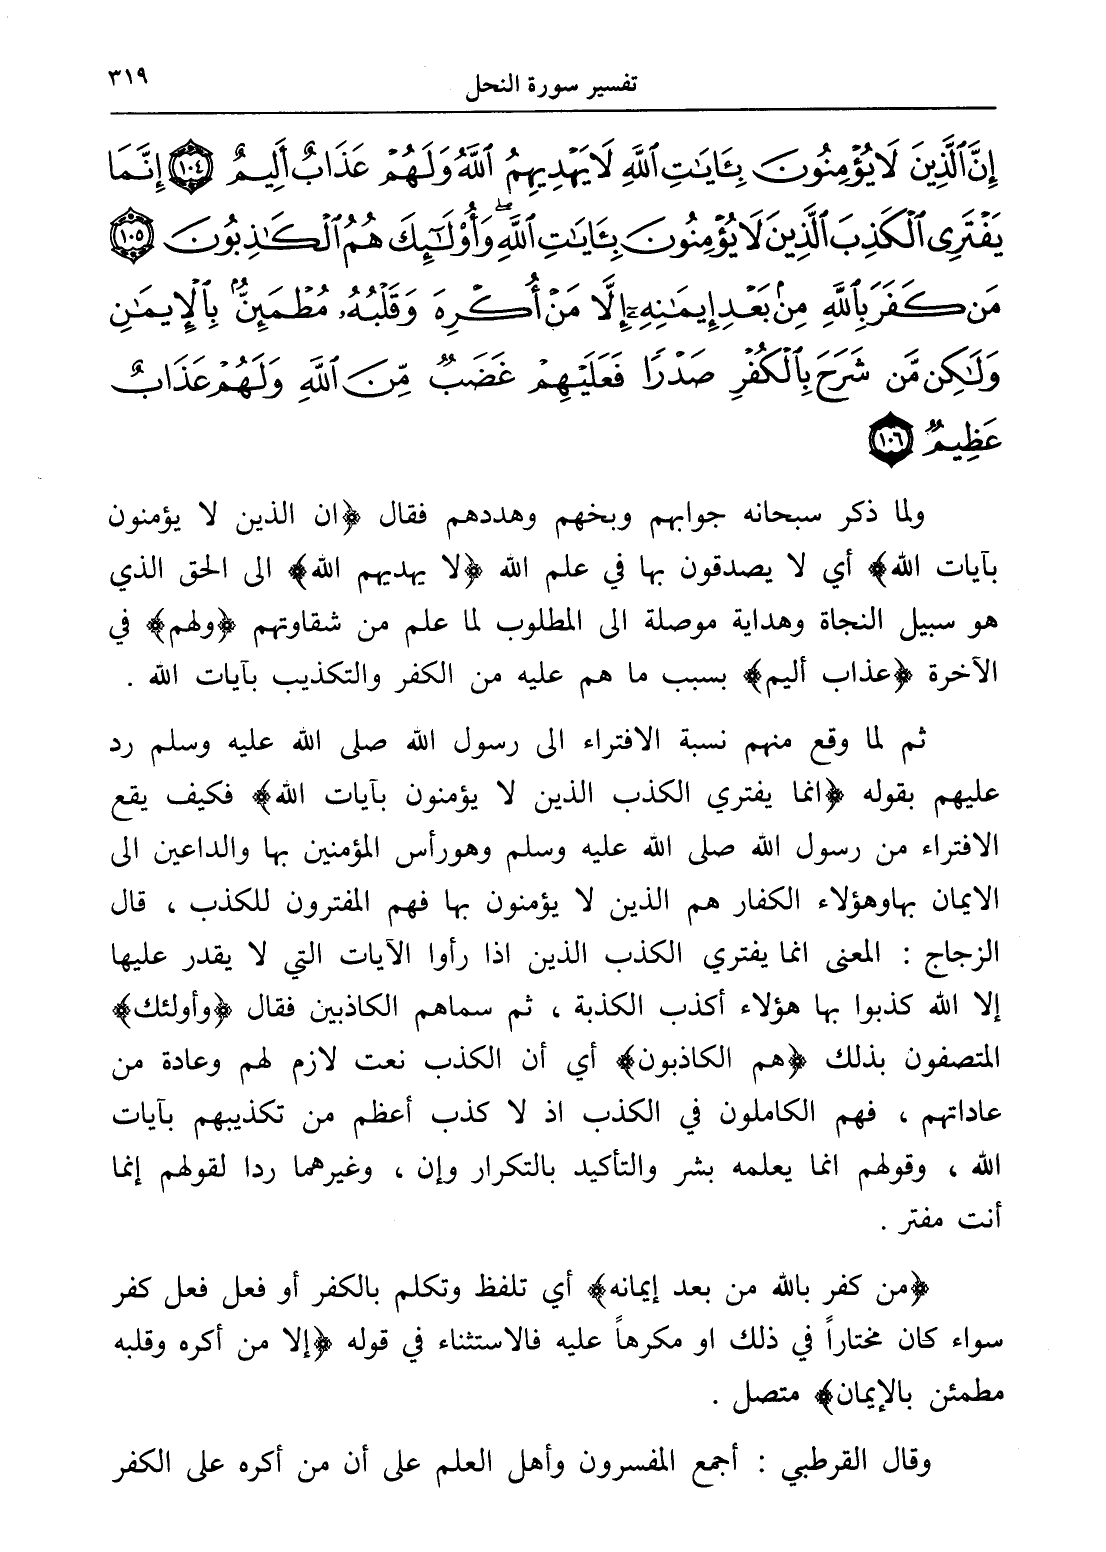 تفسير سورة النحل ٣١٩
إِنَّ ٱلَّذِينَ لَا يُؤْمِنُونَ بِـَٔايَـٰتِ ٱللَّهِ لَا يَهْدِيهِمُ ٱللَّهُ وَلَهُمْ عَذَابٌ أَلِيمٌ ١٠٤ إِنَّمَا
يَفْتَرِى ٱلْكَذِبَ ٱلَّذِينَ لَا يُؤْمِنُونَ بِـَٔايَـٰتِ ٱللَّهِ ۖ وَأُوْلَـٰٓئِكَ هُمُ ٱلْكَـٰذِبُونَ ١٠٥
مَن كَفَرَ بِٱللَّهِ مِنۢ بَعْدِ إِيمَـٰنِهِۦٓ إِلَّا مَنْ أُكْرِهَ وَقَلْبُهُۥ مُطْمَئِنٌّۢ بِٱلْإِيمَـٰنِ
وَلَـٰكِن مَّن شَرَحَ بِٱلْكُفْرِ صَدْرًا فَعَلَيْهِمْ غَضَبٌ مِّنَ ٱللَّهِ وَلَهُمْ عَذَابٌ
عَظِيمٌ ١٠٦
ولما ذكر سبحانه جوابهم وبخهم وهددهم فقال ﴿ان الذين لا يؤمنون
بآيات الله﴾ أي لا يصدقون بها في علم الله ﴿لا يهديهم الله﴾ الى الحق الذي
هو سبيل النجاة وهداية موصلة الى المطلوب لما علم من شقاوتهم ﴿ولهم﴾ في
الآخرة ﴿عذاب أليم﴾ بسبب ما هم عليه من الكفر والتكذيب بآيات الله .
ثم لما وقع منهم نسبة الافتراء الى رسول الله صلى الله عليه وسلم رد
عليهم بقوله ﴿انما يفتري الكذب الذين لا يؤمنون بآيات الله﴾ فكيف يقع
الافتراء من رسول الله صلى الله عليه وسلم وهورأس المؤمنين بها والداعين الى
الايمان بهاوهؤلاء الكفار هم الذين لا يؤمنون بها فهم المفترون للكذب ، قال
الزجاج : المعنى انما يفتري الكذب الذين اذا رأوا الآيات التي لا يقدر عليها
إلا الله كذبوا بها هؤلاء أكذب الكذبة ، ثم سماهم الكاذبين فقال ﴿وأولئك﴾
المتصفون بذلك ﴿هم الكاذبون﴾ أي أن الكذب نعت لازم لهم وعادة من
عاداتهم ، فهم الكاملون في الكذب اذ لا كذب أعظم من تكذيبهم بآيات
الله ، وقولهم انما يعلمه بشر والتأكيد بالتكرار وإن ، وغيرهما ردا لقولهم إنما
أنت مفتر .
﴿من كفر بالله من بعد إيمانه﴾ أي تلفظ وتكلم بالكفر أو فعل فعل كفر
سواء كان مختاراً في ذلك او مكرهاً عليه فالاستثناء في قوله ﴿إلا من أكره وقلبه
مطمئن بالإيمان﴾ متصل .
وقال القرطبي : أجمع المفسرون وأهل العلم على أن من أكره على الكفر